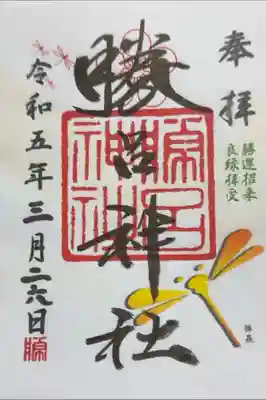 奉拝
勝運招来
良縁拝受
勝呂神社
令和五年三月二六日